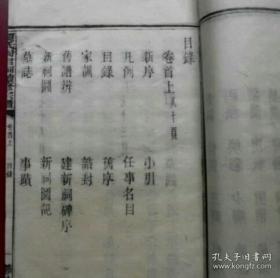 目錄
卷首上 八十頁
新序 小引
凡例 任事名目
目錄 舊序
家訓 誥封
舊譜辨 建新祠碑序
新祠圖 新祠圖記
墓誌 事蹟
孔夫子旧书网